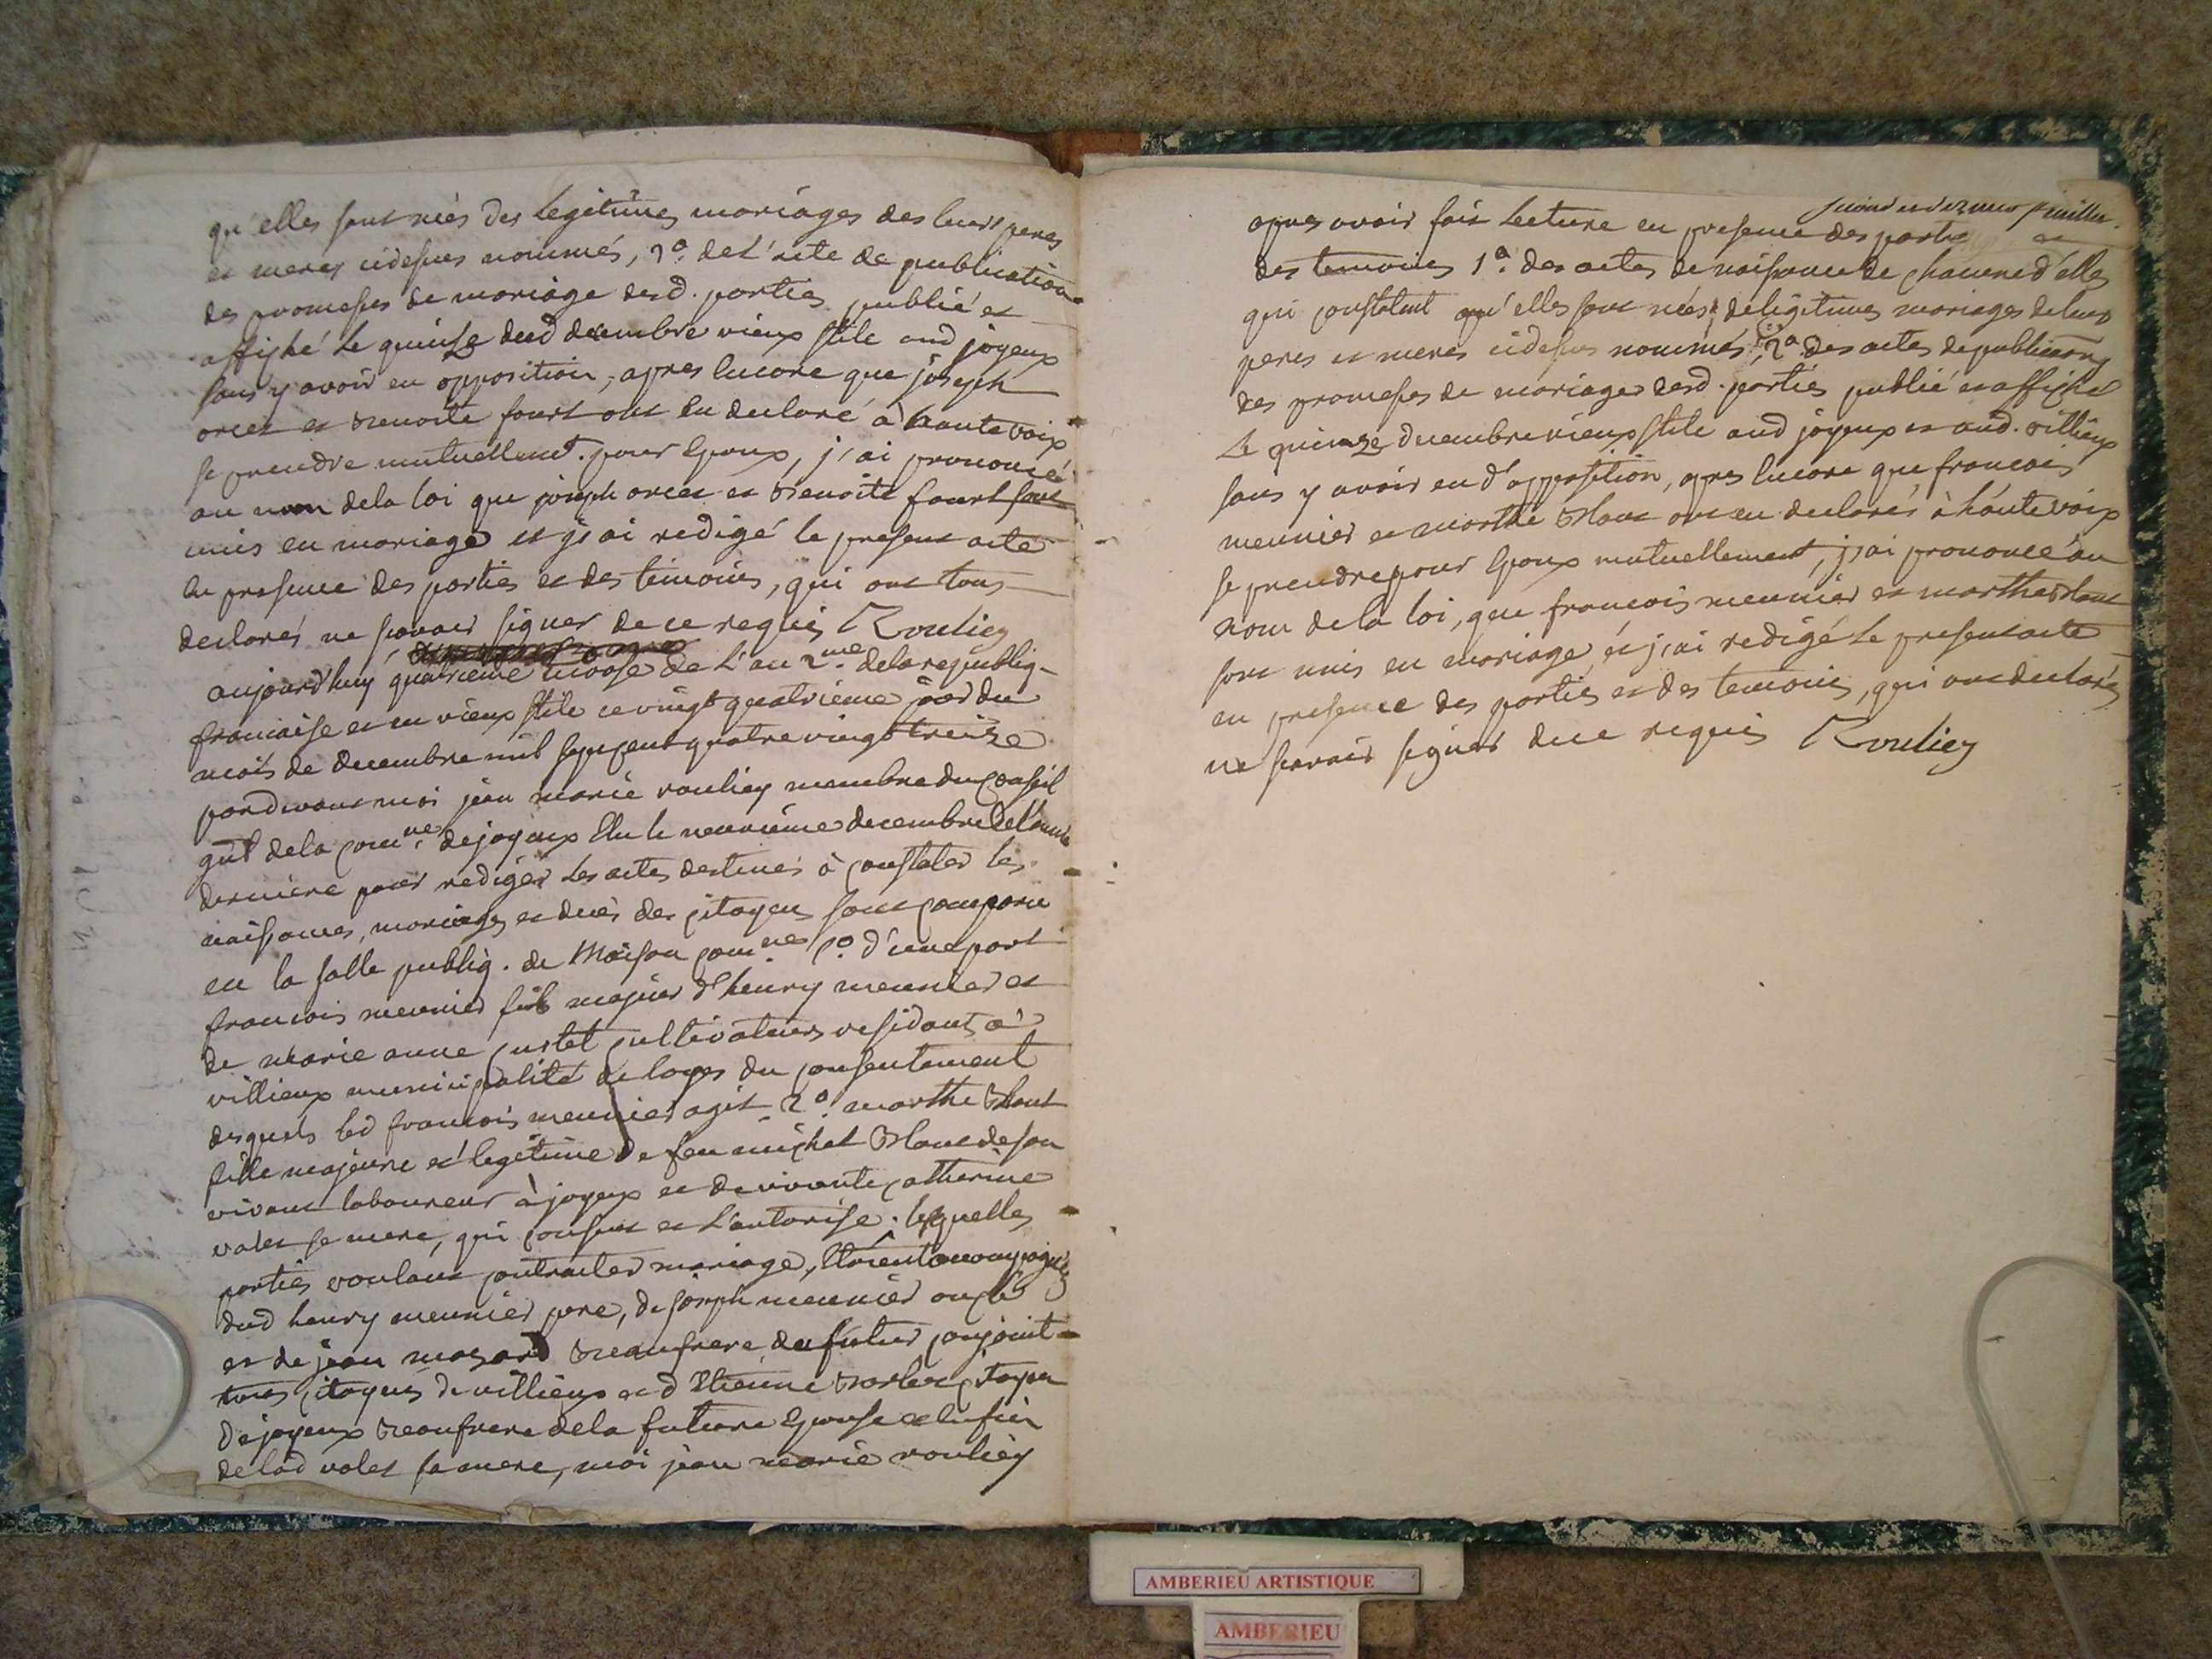 qu'elles sont nées des legitimes mariages des leurs peres
et meres cidessus nommés, 2°. de l'acte de publication
des promesses de mariage desd. parties publié et
affiché le quinse dud decembre vieux stile aud joyeux
sans y avoir eu opposition, apres lucore que joseph
orcet et benoite fourt ont eu declaré à haute voix
se prendre mutuellement pour epoux, j'ai prononcé
au nom de la loi que joseph orcet et benoite fourt sont
unis en mariage et j'ai redigé le present acte
en presence des parties et des temoins, qui ont tous
declarés ne savoir signer de ce requis Rouliez
aujourd'huy quatrieme nivose de l'an 2me de la republiq.
francaise et en vieux stile ce vingt quatrième jour du
mois de decembre mil sept cent quatre vingt treize
pardevant moi jean marie rouliez membre du conseil
gñl de la comne de joyeux elu le neuvième decembre de l'année
derniere pour rediger les actes destinés à constater les
naissances, mariages et decès des citoyens sont comparu
en la salle publiq. de Maison comne 1° d'une part
francois meunier fils majeur d'henry meunier et
de marie anne curtet cultivateurs residants à
villieux municipalité de loyes du consentement
desquels led francois meunier agit 2°. marthe blanc
fille majeure et legitime de feu michel blanc de son
vivant laboureur à joyeux et de vivante catherine
valet sa mere, qui consent et l'autorise. lesquelles
parties voulant contracter mariage, etoient accompagnés
dud henry meunier pere, de joseph meunier oncle
et de jean mazard beaufrere du futur conjoint
tous citoyens de villieux et d'etienne barlet citoyen
de joyeux beaufrere de la future epouse et enfin
de lad valet sa mere, moi jean marie rouliez
second et dernier feuillet.
apres avoir fait lecture en presence des parties et
des temoins 1°. des actes de naissance de chacune d'elles
qui constatent qu'elles sont nées de légitimes mariages de leurs
peres et meres cidessus nommés, 2° des actes de publications
des promesses de mariages desd. parties publié et affiché
le quinze decembre vieux stile aud joyeux et aud. villieux
sans y avoir eu d'opposition, apres lucore que francois
meunier et marthe blanc ont eu declarés à haute voix
se prendre pour epoux mutuellement, j'ai prononcé au
nom de la loi, que francois meunier et marthe blanc
sont unis en mariage, et j'ai redigé le present acte
en presence des parties et des temoins, qui ont declarés
ne savoir signer de ce requis Rouliez
AMBERIEU ARTISTIQUE
AMBERIEU